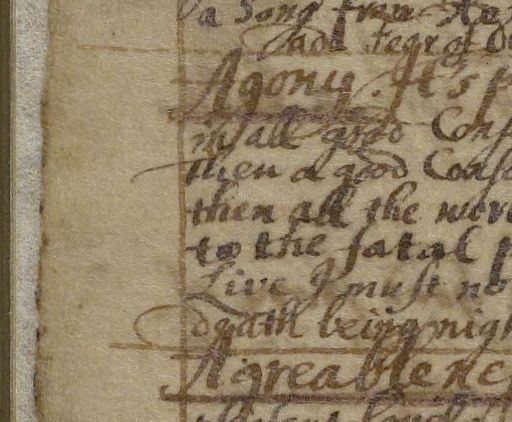 a Song from
and fears
Agony. It's
in all good Cons
then a good Cons
then all the wor
to the fatal
Live I must no
death being nigh
Agreablenes